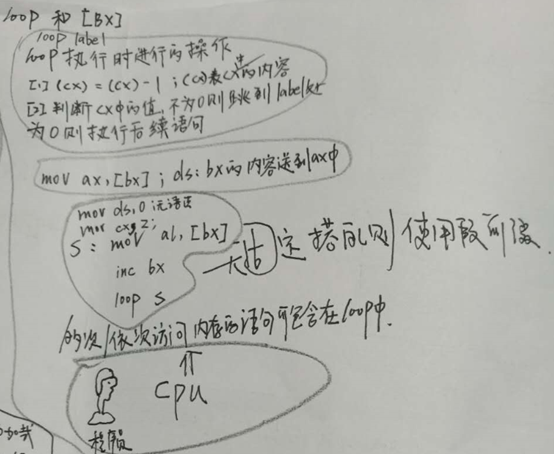 loop 和 [BX]
loop label
loop 执行时进行的操作
[1] (cx) = (cx) - 1 ; (cx)表cx中的内容
[2] 判断cx中的值, 不为0则跳到label处
为0则执行后续语句
mov ax, [bx] ; ds: bx的内容送到ax中
mov ds, 0
mov cx, 2;
S: mov al, [bx]
inc bx
loop s
定搭配则使用段前缀.
依次访问内存的语句可包含在loop中.
CPU